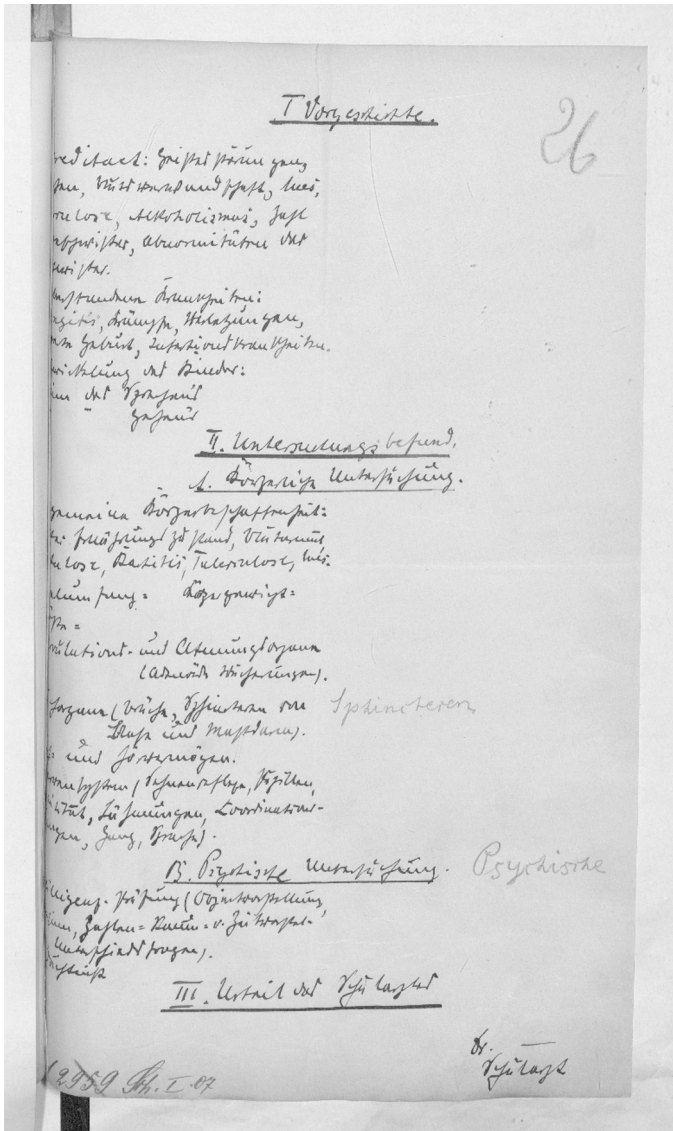 I Vorgeschichte.
26
reditaet: Geistesstörungen,
en, Blutsverwandschaft, Lues,
rculose, Alkoholismus, Zahl
eschwister, Abnormitäten der
wister.
erstandene Krankheiten:
ngitis, Krämpfe, Verletzungen,
Geburt, Infectionskrankheiten.
wickelung des Kindes:
des Sprechens
" Gehens
II. Untersuchungsbefund.
A. Körperliche Untersuchung.
gemeine Körperbeschaffenheit:
Ernährungszustand, Blutarmut
ulose, Rachitis, Tuberculose, Lues.
umfang = Körpergewicht =
=
culations- und Atmungsorgane
(Adenoide Wucherungen).
organe (Brüche, Sphincteren von Sphincteren
Blase und Mastdarm).
und Hörvermögen.
vensystem (Sehnenreflexe, Pupillen,
ilität, Lähmungen, Coordinations-
ungen, Gang, Sprache).
B. Psychische Untersuchung. Psychische
lligenz-Prüfung (Objectvorstellung,
Zahlen= Raum= u. Zeitvorstel-
Unterschiedsfragen).
dächtniß
III. Urteil des Schularztes
Dr. —
Schularzt
2959 Sch. I. 07